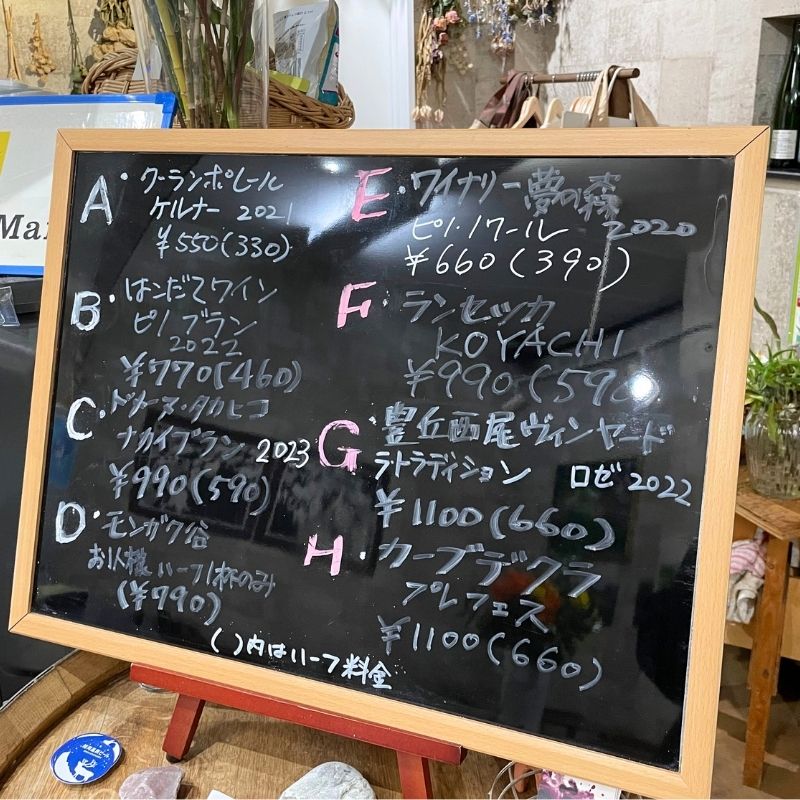 A・グランポレール
ケルナー 2021
¥550(330)
B・はこだてワイン
ピノブラン
2022
¥770(460)
C・ドメーヌ・タカヒコ
ナカイブラン 2023
¥990(590)
D・モンガク谷
お1人様 ハーフ1杯のみ
(¥790)
E・ワイナリー夢の森
ピノ・ノワール 2020
¥660(390)
F・ランセッカ
KOYACHI
¥990(590
G・豊丘西尾ヴィンヤード
ラトラディション ロゼ2022
¥1100(660)
H・カーブデクラ
プレフェス
¥1100(660)
( )内はハーフ料金
Ma